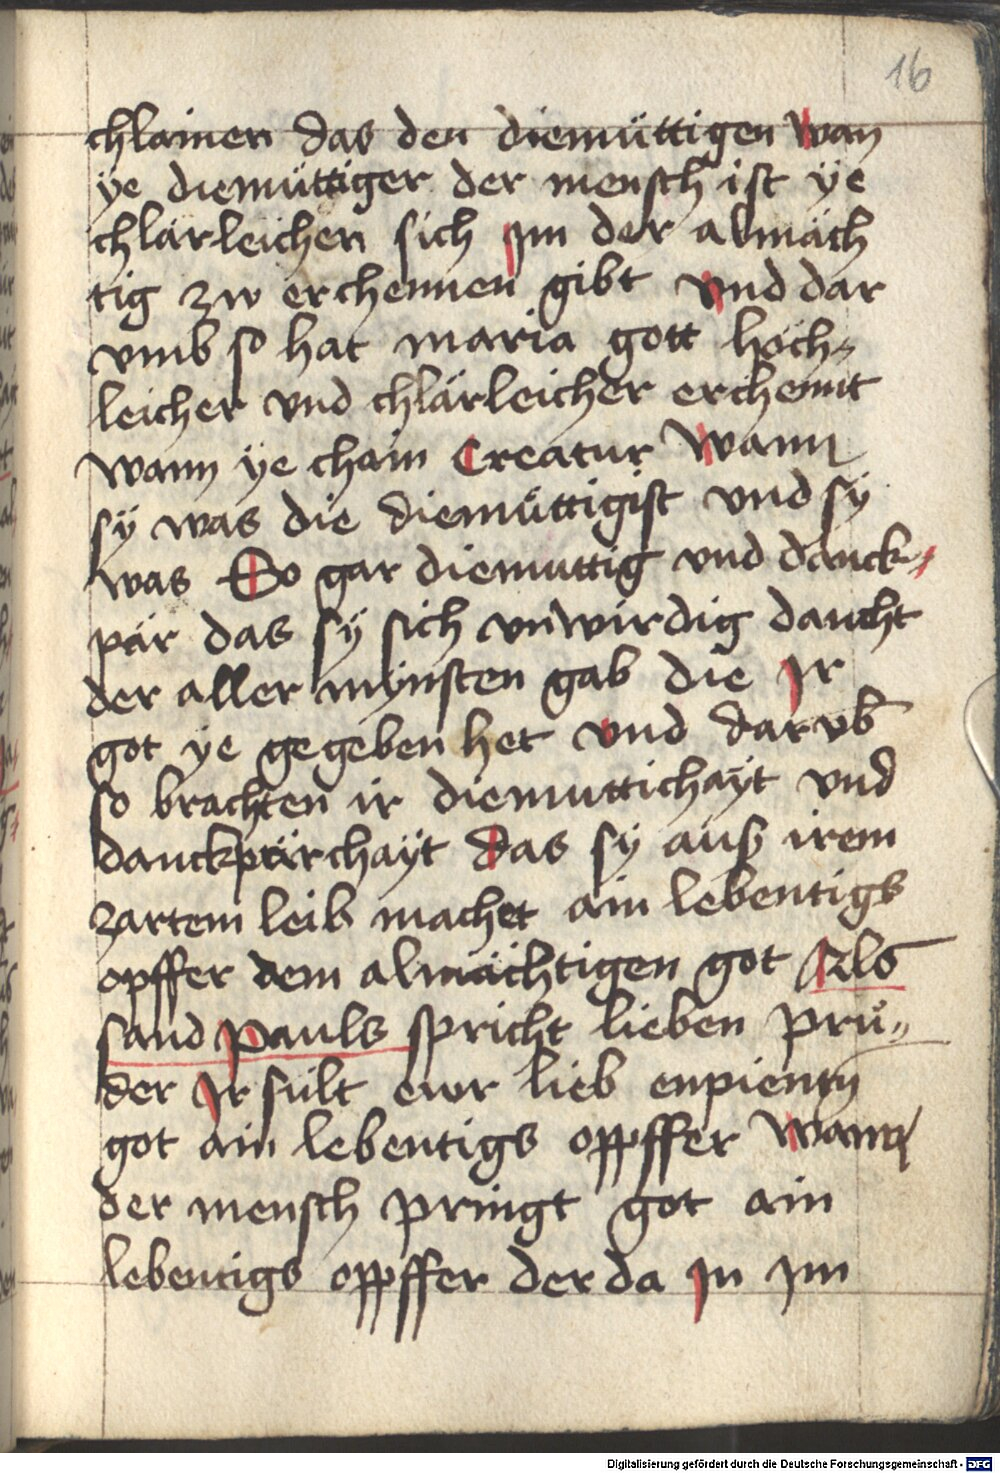 16
chlainen das den diemüttigen wan
ye diemüttiger der mensch ist ye
chlärleichen sich Im der almäch
tig zw erchennen gibt vnd dar
vmb so hat maria gott höch-
leicher vnd chlärleicher erchennt
wann ye chain Creatur wann
sÿ was die diemüttigist vnd sÿ
was So gar diemuttig vnd danck-
pär das sÿ sich vnwirdig daucht
der aller mynsten gab die Ir
got ye gegeben het vnd darvb
so brachten ir diemuttichaÿt vnd
danckpärchaÿt das sÿ auß irem
zartem leib machet ain lebentigs
opffer dem almächtigen got Als
sand pauls spricht lieben prü-
der Ir sült ewr lieb enpieten
got ain lebentigs oppffer wann
der mensch pringt got ain
lebentigs oppffer der da In Im
Digitalisierung gefördert durch die Deutsche Forschungsgemeinschaft - DFG